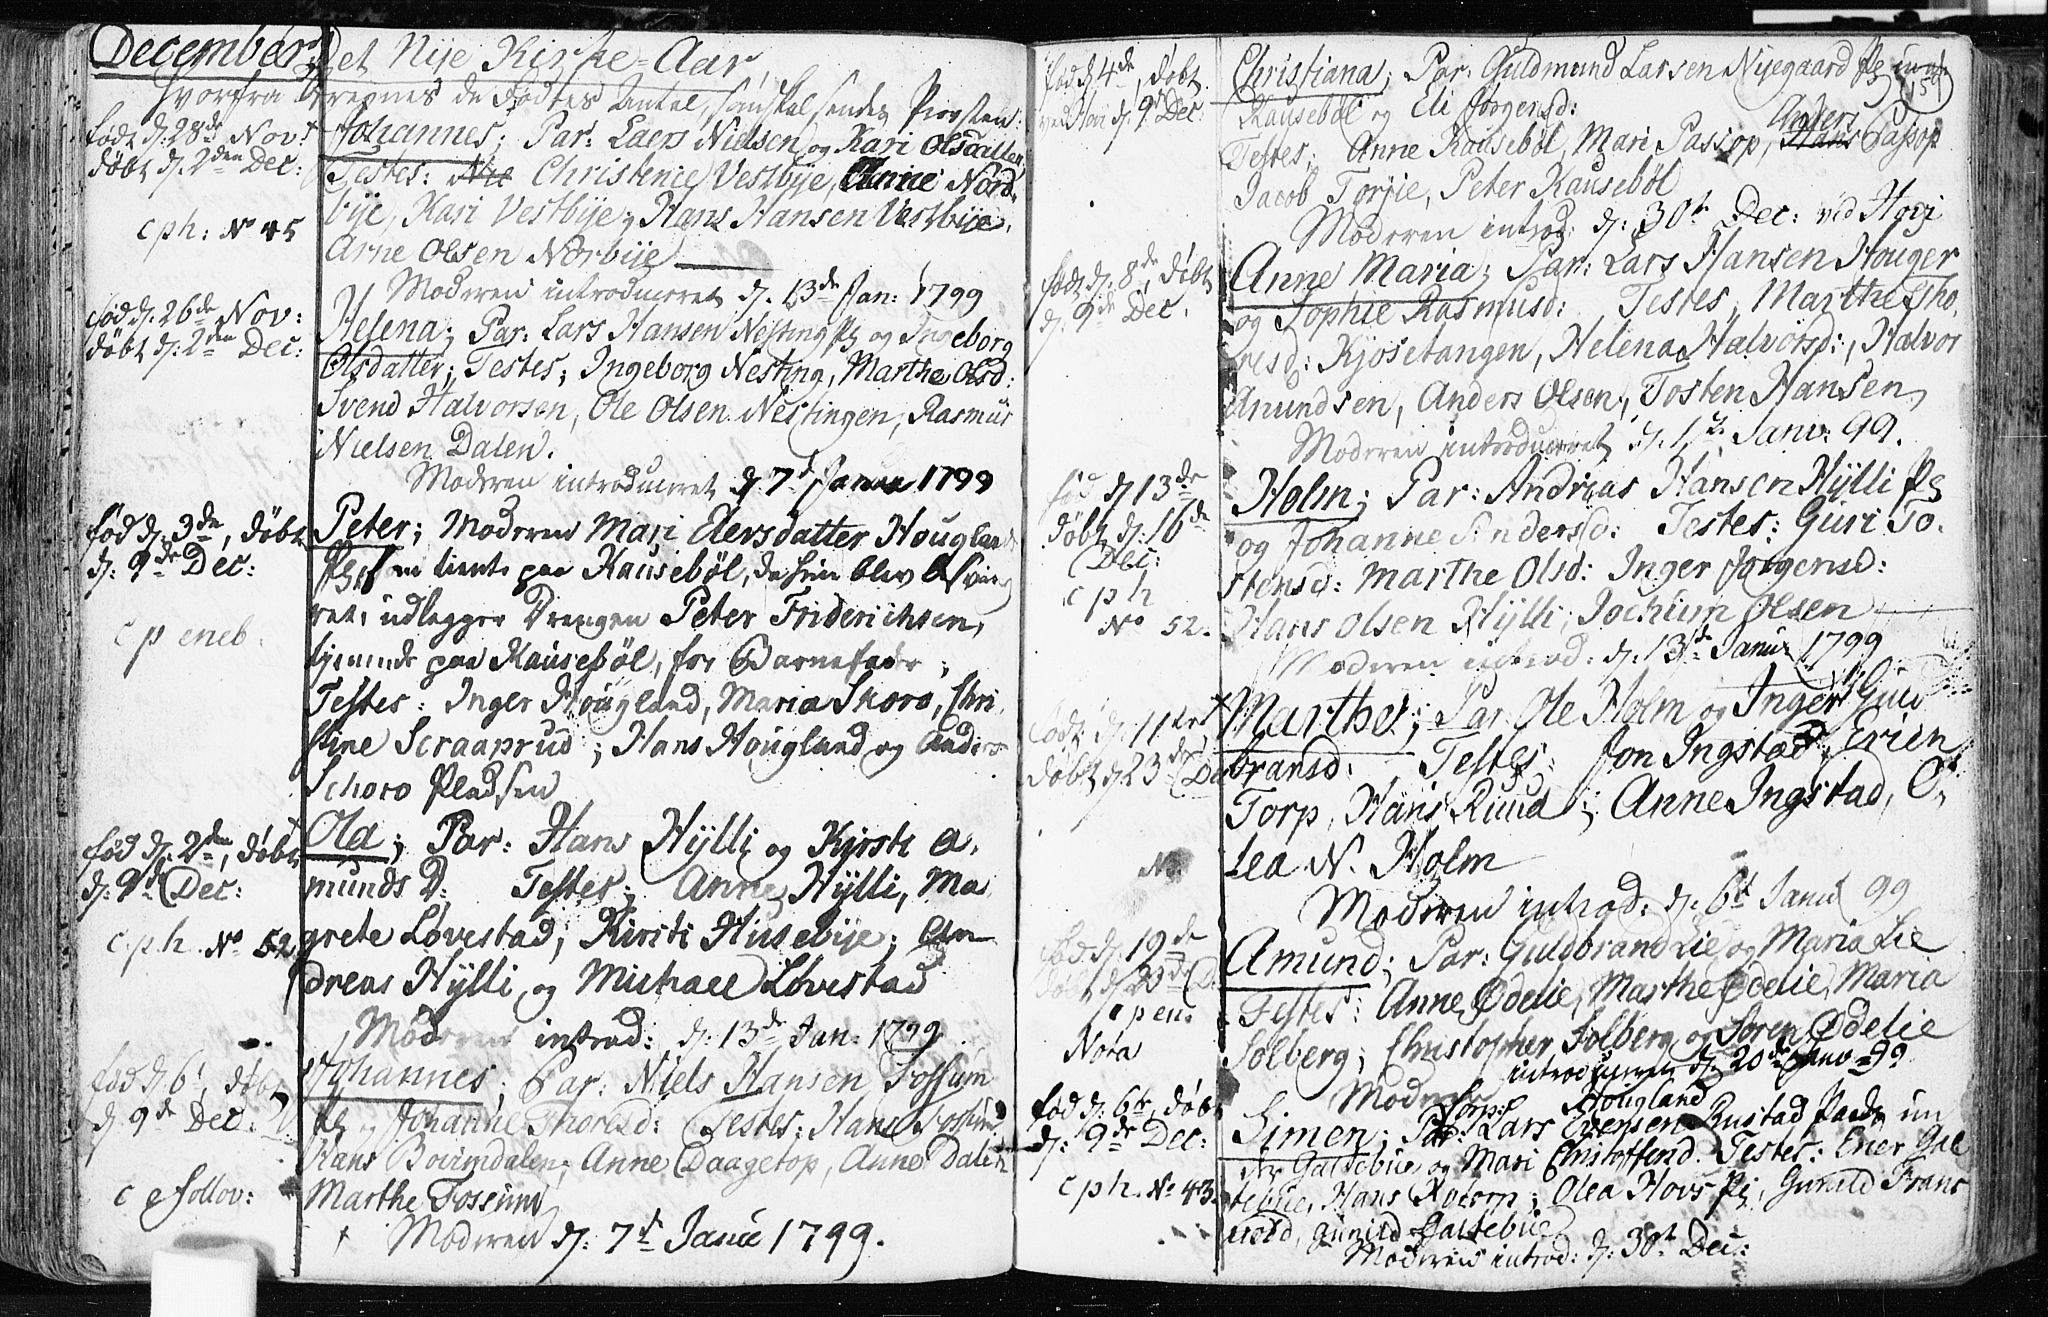 December, Det Nije Kirke-Aar,
hvorfra bregnes de fødtes Antal, som skal sendes Provsten:
født d: 28de Nov:
døbt d. 2den Dec:
cph: No 45
Johannes; Par: Laers Nielsen og Kari Olsdatter
Testes: Nie Christence Vestbye, Anne Nord-
bye, Kari Vestbije, Hans Hansen Vestbije,
Arne Olsen Nørbije
Moderen introduceret d. 13de Jan: 1799
fød d. 26de Nov:
døbt d: 2den Dec:
Helena; Par: Lars Hansen Nesting Pl og Ingeborg
Olsdatter; Testes; Ingeborg Nesting, Marthe Olsd:
Svend Halvorsen, Ole Olsen Nestingen, Rasmus
Nielsen Dalen.
Moderen introduceret d 7d Janua 1799
fød d. 3de, døbt
d: 9de Dec:
c p eneb.
Peter; Moderen Mari Eversdatter Hougland
som tiente paa Kausebøl, da hun blev besvan-
ret, udlegger Drengen Peter Friderichsen,
tjenende paa Kausebøl, for Barnefader;
Testes: Inger Hougland, Maria Skoro, Chri
stine Scraaprud; Hans Hougland og Anders
Schoro Pladsen
fød d. 2den, døbt
d: 9d Dec:
c.p.h. No 52
Ola; Par: Hans Hylli og Kirsti A.
munds D: Testes; Anne Hylli, Ma
grete Løvestad, Kirsti Husebije; An
dreas Hylli og Michael Løvestad
Moderen introd: d: 13de Jan: 1799
fød d. 6t, døbt
d. 9de Dec:
c e follov:
Johannes; Par: Niels Hansen Fossum
Pl og Johanne Thoresd: Testes; Hans Fossum
Hans Bovimdalen, Anne Daagetop, Anne Dalen
Marthe Fossum
Moderen d: 7d Janu 1799.
født d 4de, døbt
ved Hovi d. 9d Dec:
Christiana; Par: Guldmund Larsen Nijegaard Pl und:
159
Kausebøl og Eli Jørgensd:
Anders
Testes; Anne Kausebøl, Mari Passop, Hans Passop
Jacob Torjie, Peter Kausebøl
Moderen introd: d: 30t Dec: vid Hovi
født d. 8de, døbt
d: 9de Dec.
Anne Maria; Par: Lars Hansen Houger
og Sophie Rasmusd: Testes; Marthe Tho.
resd: Kjosetangen, Helena Halvorsd:, Halvor
Anundsen, Anders Olsen, Tosten Hansen,
Moderen introduceret d. 1t Janu: 99.
fød d 13de
døbt d: 16de
Dec:
c p h
No 52.
Holm; Par: Andrias Hansen Hylli Pl
og Johanne Andersd: Testes: Guri To-
stensd: Marthe Olsd: Inger Jørgensd:
Hans Olsen Hylli, Jochium Olsen
Moderen introd: d. 13de Janu: 1799
født d. 11te,
døbt d 23de Dec
No
Marthe; Par: Ole Holm og Inger Gul
bransd: Testes: Jon Ingstad, Erich
Torp, Hans Ruud; Anne Ingstad, O-
lea N. Holm
Moderen introd: d: 6t Janu 99
fød d. 19de
døbt d 23de D.
c p en:
Nota
Amund; Par: Guldbrand Lie og Maria Lie
Testes: Anne Ødelie, Marthe Ødelie, Maria
Solberg; Christopher Solberg og Søren Ødelie
introduceret d. 20de Janv 99
Moderen
fød d: 6te, døbt
d: 9de Dec:
c p h. No 43.
Hougland
Simen; Par: Lars Evensen Rustad Plads un
der Galtebue og Mari Christoffersd. Testes: Ener Gal
tebue, Hans Rotorp; Olea Hovs Pl, Gunild Frans
rod, Gunild Galtebue
Moderen introd: d: 30t Dec: